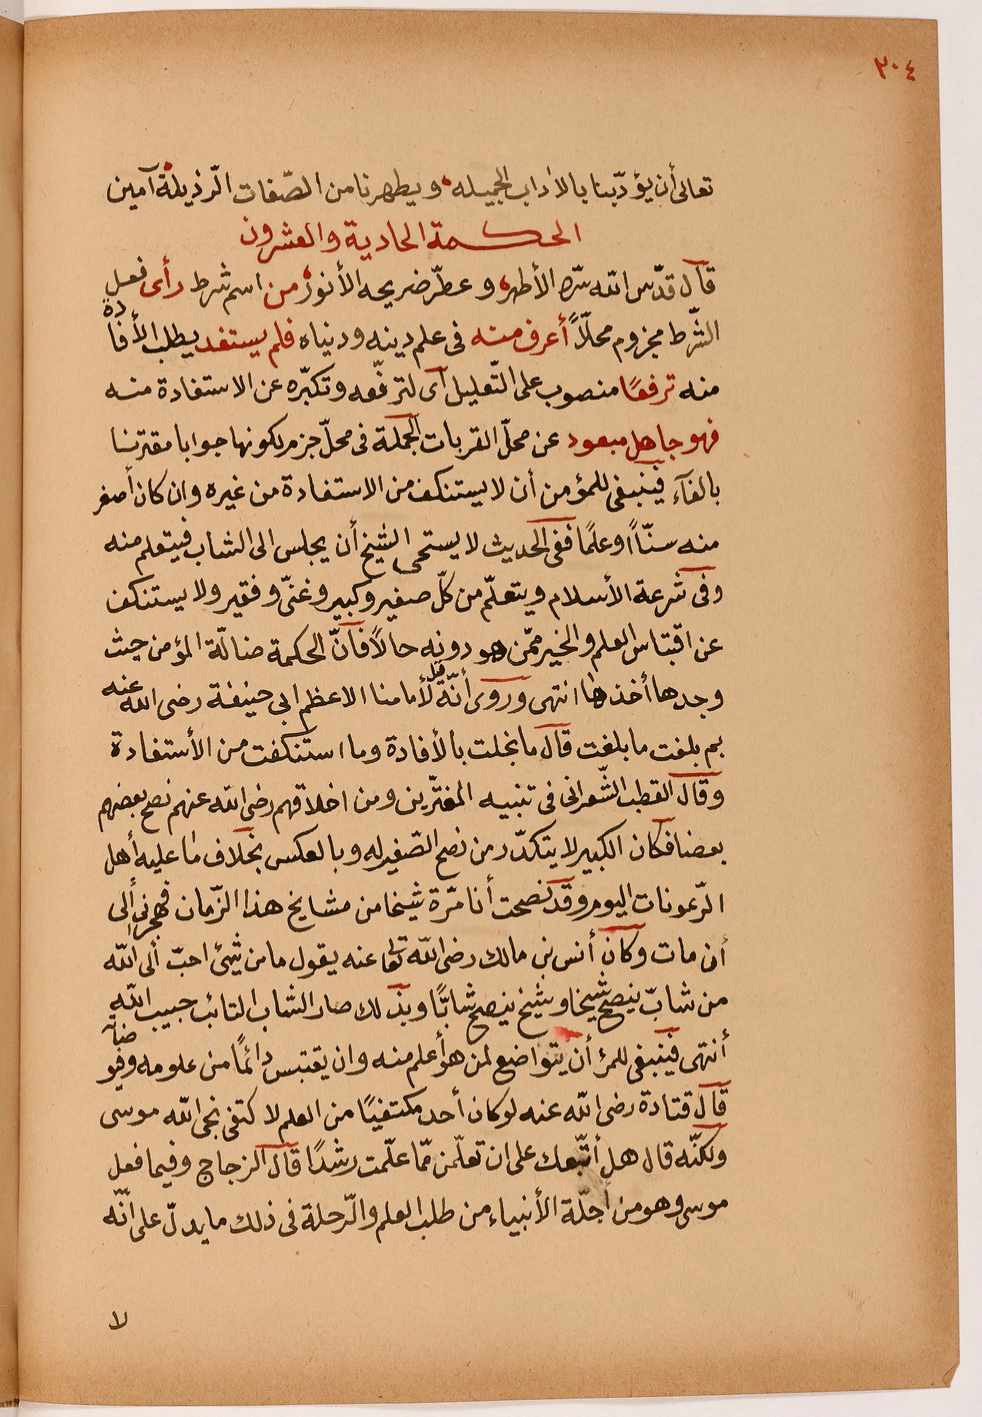 ٣٠٤
تعالى أن يؤدّبنا بالاداب الجميله، ويطهرنا من الصّفات الرّذيلة آمين
الحكمة الحادية والعشرون
قال قدّس الله سّره الأطهر، وعطّر ضريحه الأنور، من اسم شرط رأى فعل
الشّرط مجزوم محلّاً أعرف منه فى علم دينه ودنياه فلم يستفد يطلب الأفادة
منه ترفعًا منصوب على التّعليل أى لترفّعه وتكبّره عن الاستفادة منه
فهو جاهل مبعود عن محلّ القربات الجملة فى محلّ جزم لكونها جوابا مقترنا
بالفآء فينبغى للمؤمن أن لا يستنكف من الاستفادة من غيره وان كان أصغر
منه سنّاً او علمًا ففى الحديث لا يستحى الشيخ أن يجلس الى الشاب فيتعلم منه
وفى شرعة الأسلام ويتعلّم من كلّ صغير وكبير وغنّى وفقير ولا يستنكف
عن اقتباس العلم والخير ممّن هو دونه حالاً فانّ الحكمة ضالّة المؤمن حيث
وجدها أخذها انتهى وروى أنّه قيل لأمامنا الاعظم ابى حنيفة رضى الله عنه
بم بلغت ما بلغت قال ما بخلت بالأفادة وما استنكفت من الأستفادة
وقال القطب الشّعرانى فى تنبيه المغترّين ومن اخلاقهم رضى الله عنهم نصح بعضهم
بعضا فكان الكبير لا يتكدّر من نصح الصّغير له وبالعكس بخلاف ما عليه أهل
الرّعونات اليوم وقد نصحت أنا مرّة شيخا من مشايخ هذا الزّمان فهجرنى ألى
أن مات وكان أنس بن مالك رضى الله تعا عنه يقول ما من شئ احبّ ألى الله
من شابّ ينصح شيخا وشيخ ينصح شابًّا وبذلك صار الشاب التائب حبيب الله
أنتهى فينبغى للمرء أن يتواضع لمن هو أعلم منه وان يقتبس دائمًا من علومه وفيوضاته
قال قتادة رضى الله عنه لو كان أحد مكتفيًا من العلم لاكتفى نجى الله موسى
ولكنّه قال هل أتّبعك على ان تعلّمن ممّا علّمت رشدًا قال الزجاج وفيما فعل
موسى وهو من أجلّة الأنبياء من طلب العلم والرّحلة فى ذلك ما يدلّ على أنّه
لا